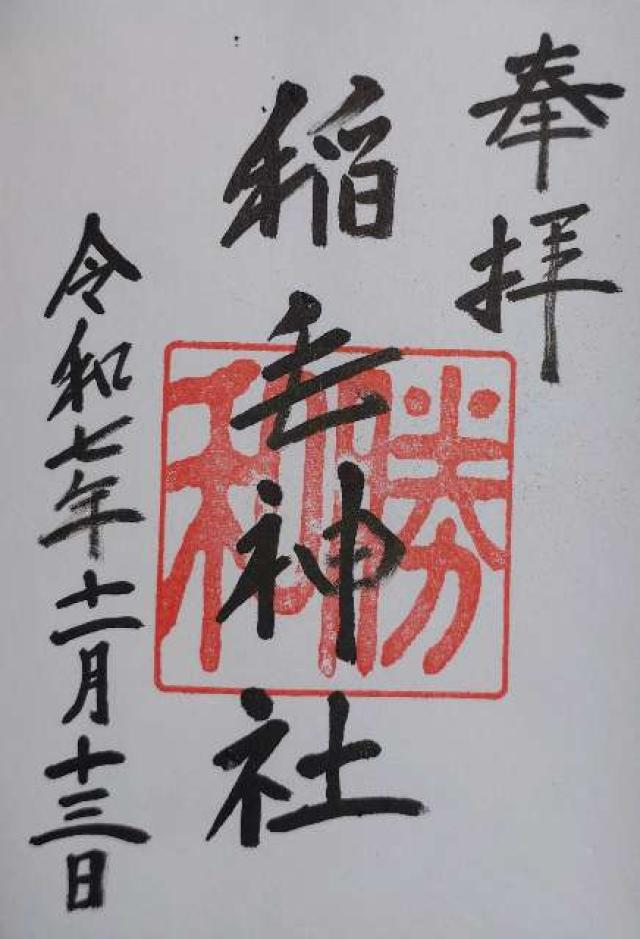 奉拝
稲毛神社
勝利
令和七年十一月十三日